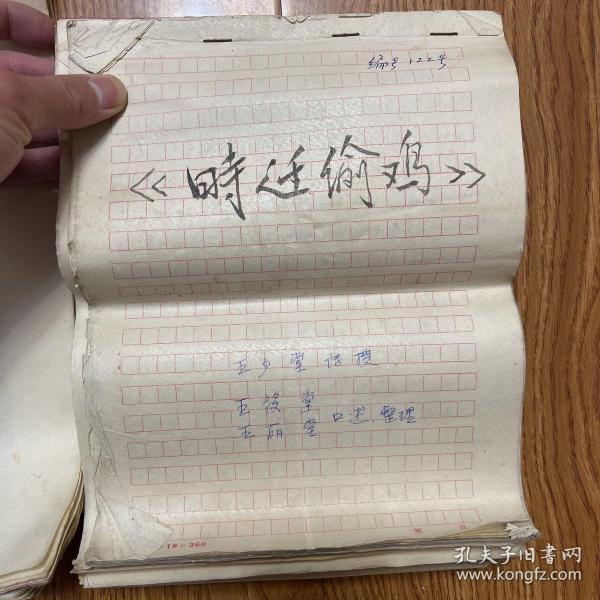 编号122号
《時迁偷鸡》
王少堂传授
王筱堂
王丽堂 口述、整理
18—360
第 页
孔夫子旧书网
www.kongfz.com